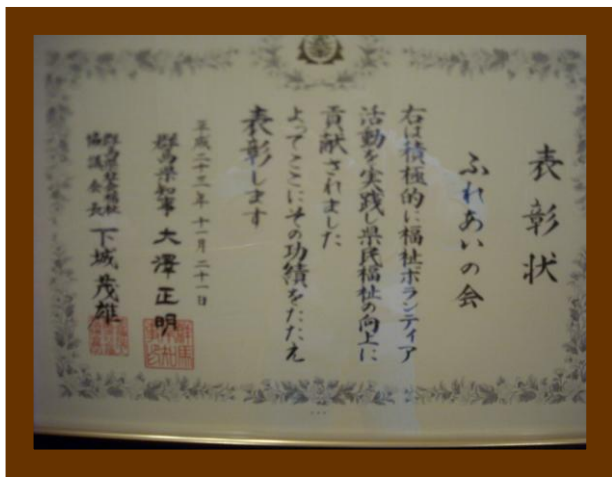 表彰状
ふれあいの会
右は積極的に福祉ボランティア
活動を実践し県民福祉の向上に
貢献されました
よってここにその功績をたたえ
表彰します
平成二十三年十一月二十一日
群馬県知事 大澤正明
群馬県社会福祉
協議会長 下城茂雄